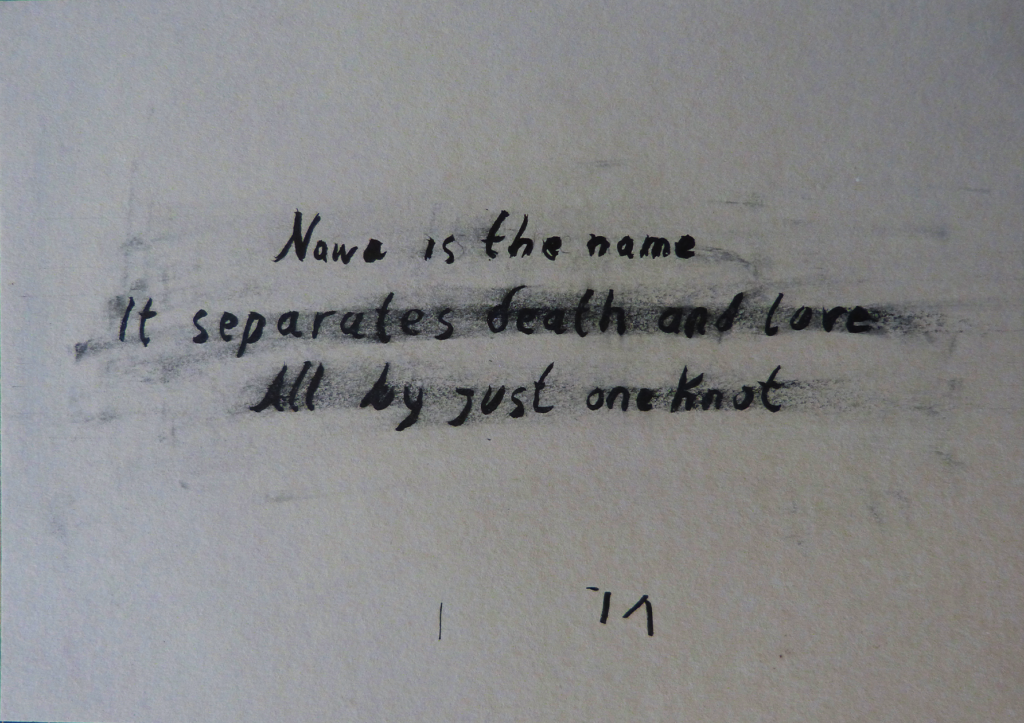 Nawa is the name
It separates death and love
All by just one knot